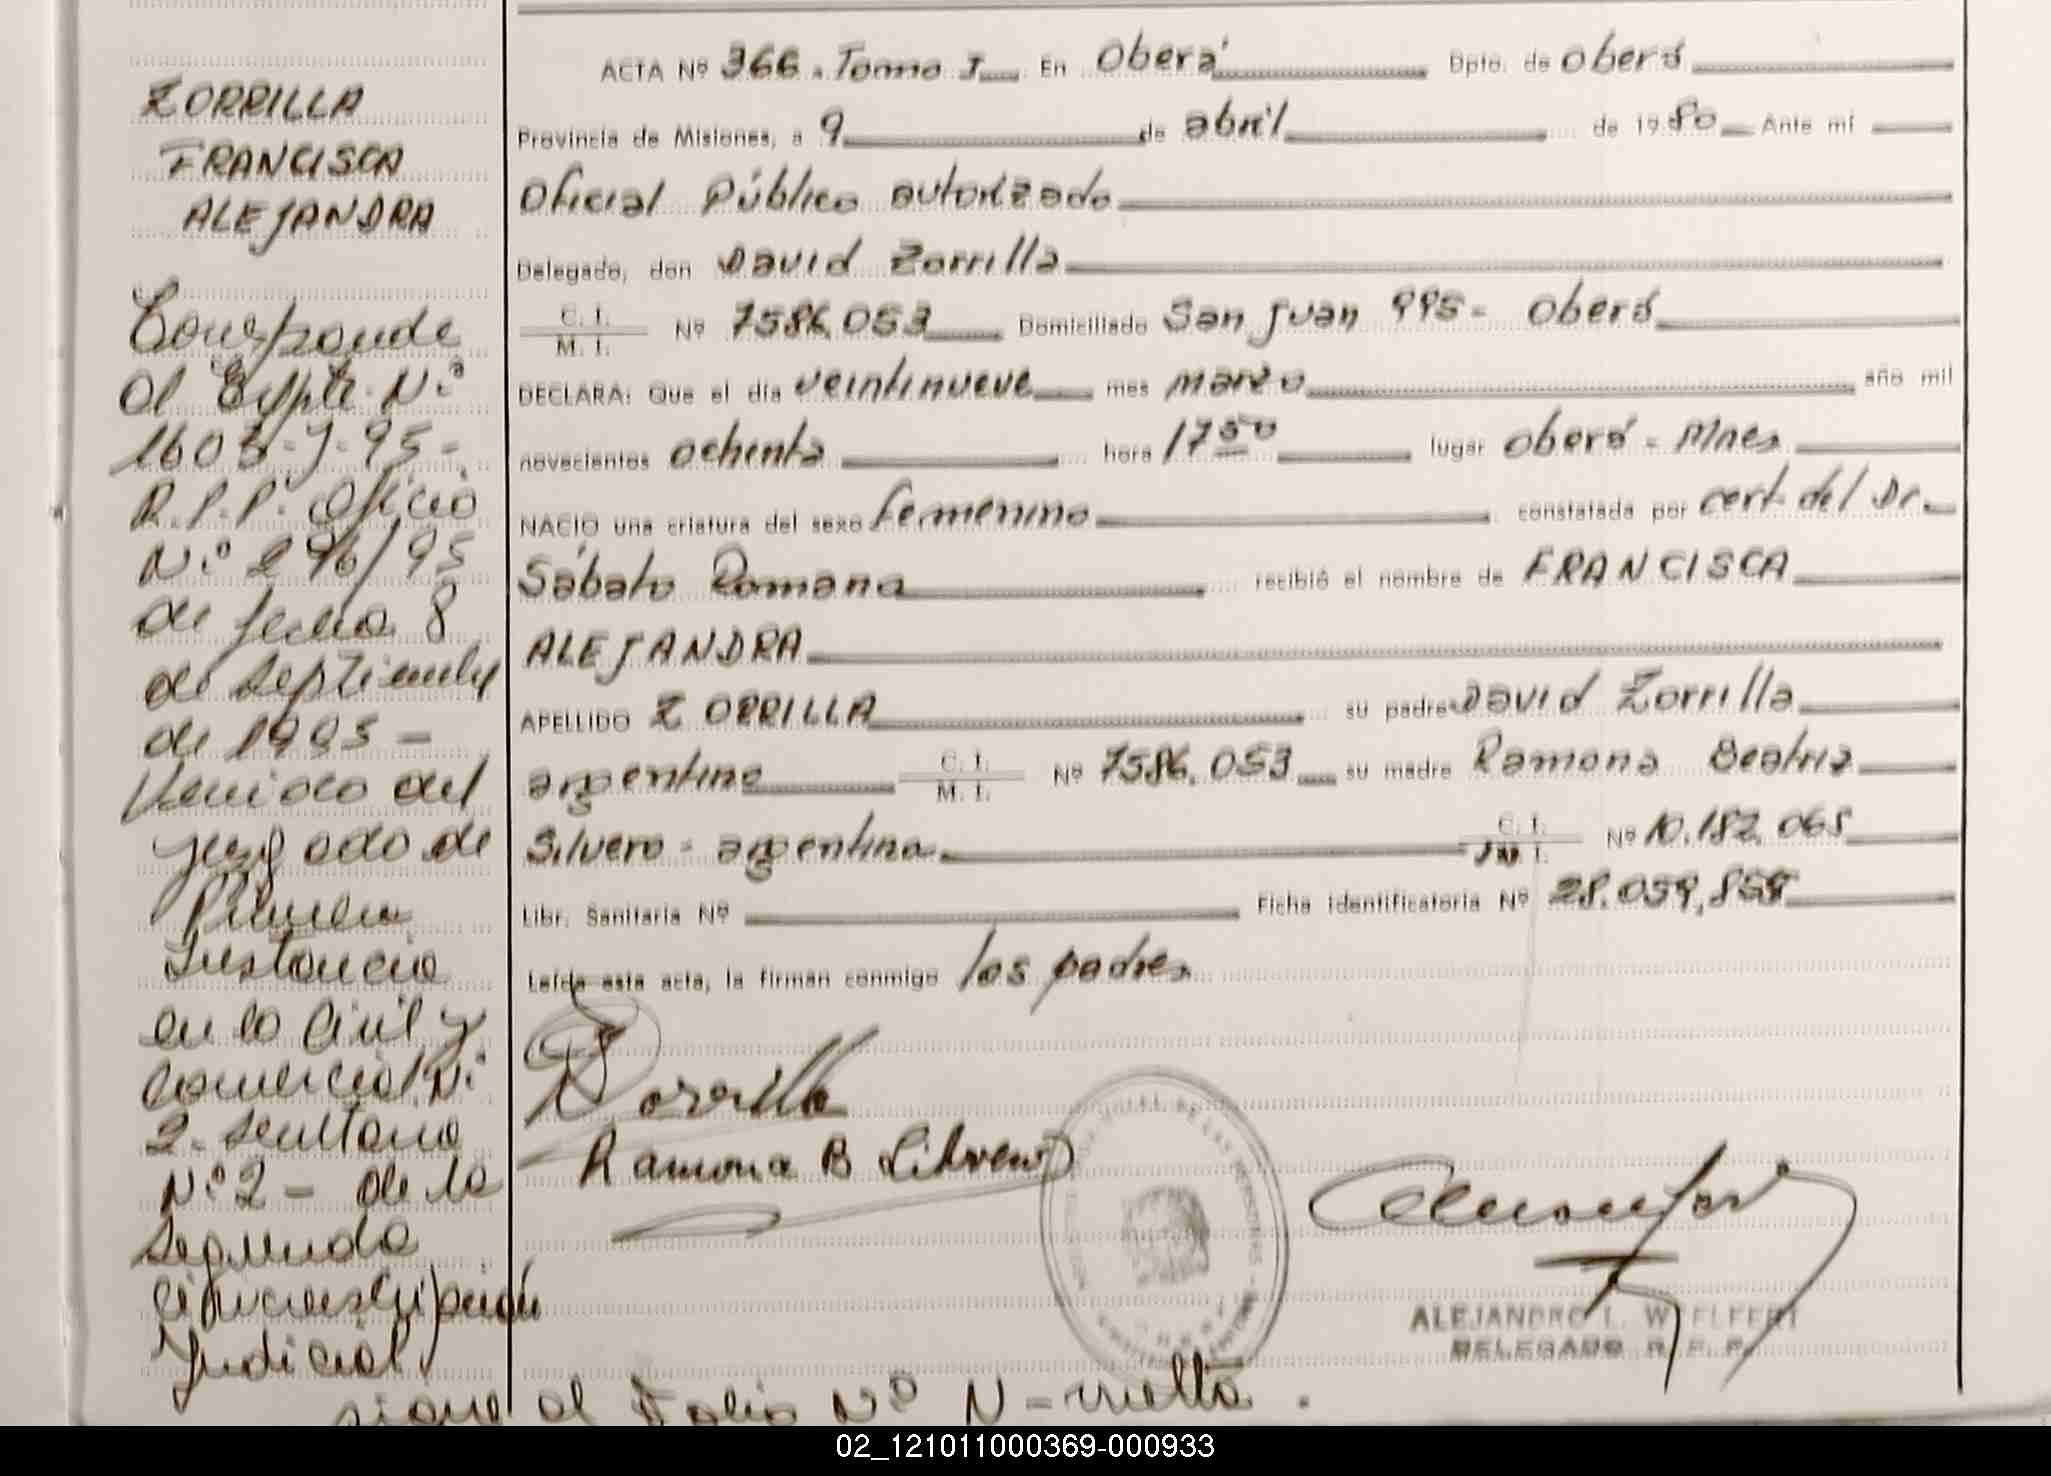 ZORRILLA
FRANCISCA
ALEJANDRA
Corresponde
al Expte. Nº
1603-J-95-
R.P.P. Oficio
Nº 296/95
de fecha 8
de Septiembre
de 1995 -
Venido del
Juzgado de
Primera
Instancia
en lo Civil y
Comercial Nº
2. Secretaria
Nº 2 - de la
Segunda
Circunscripción
Judicial
ACTA Nº 366. Tomo I En Oberá Dpto. de Oberá
Provincia de Misiones, a 9 de abril de 1980 Ante mí
Oficial Público autorizado
Delegado, don David Zorrilla
C. I. / M. I. Nº 7586.053 Domiciliado San Juan 995 - Oberá
DECLARA: Que el día veintinueve mes marzo año mil
novecientos ochenta hora 17 50 lugar Oberá - Mnes
NACIO una criatura del sexo femenino constatada por cert. del Dr.
Sábato Romano recibió el nombre de FRANCISCA
ALEJANDRA
APELLIDO ZORRILLA su padre David Zorrilla
argentino C. I. / M. I. Nº 7586.053 su madre Ramona Beatriz
Silvero - argentina C. I. / M. I. Nº 10.182.065
Libr. Sanitaria Nº Ficha identificatoria Nº 28.059.858
Leída esta acta, la firman conmigo los padres
Zorrilla
Ramona B
ALEJANDRO L. WELFERT
DELEGADO R. P. P.
sigue al Folio Nº N - vuelta.
02_121011000369-000933